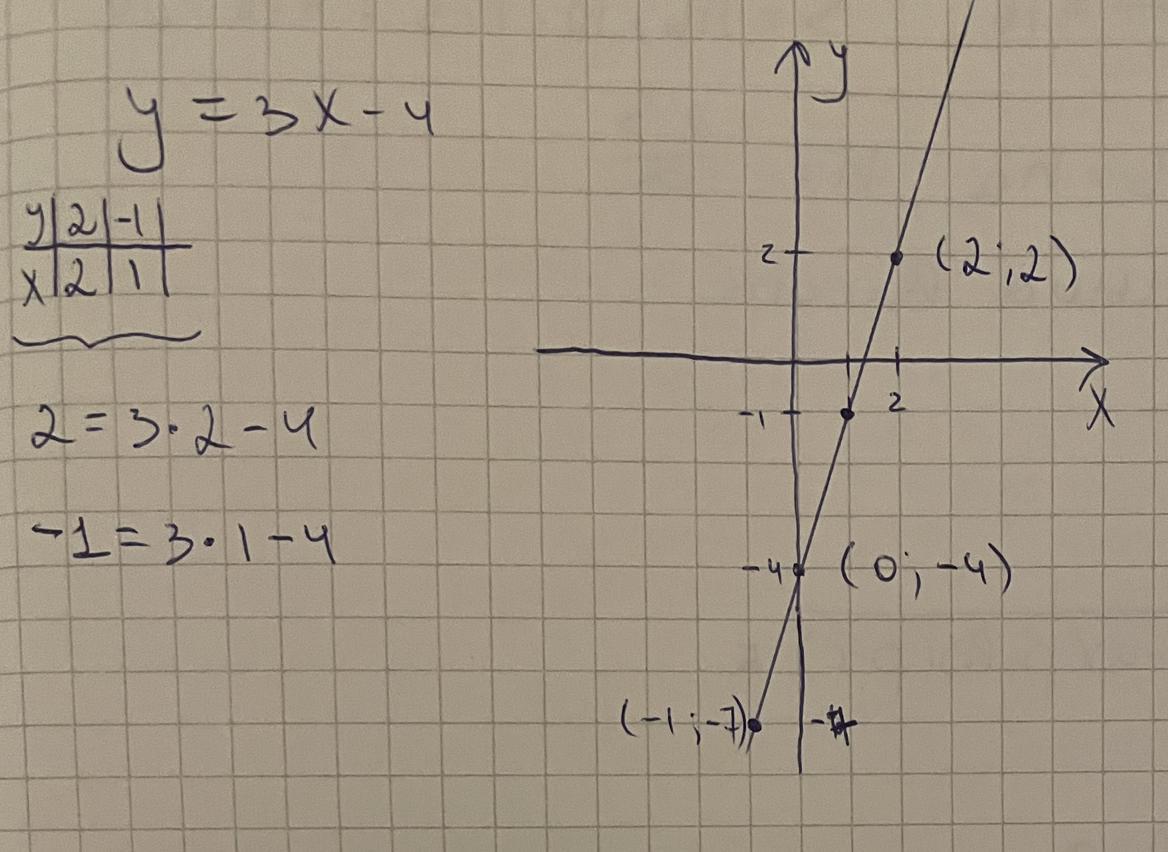 y = 3x - 4
y | 2 | -1 |
x | 2 | 1 |
2 = 3 · 2 - 4
-1 = 3 · 1 - 4
y
2
(2; 2)
-1
2
x
-4
(0; -4)
(-1; -7)